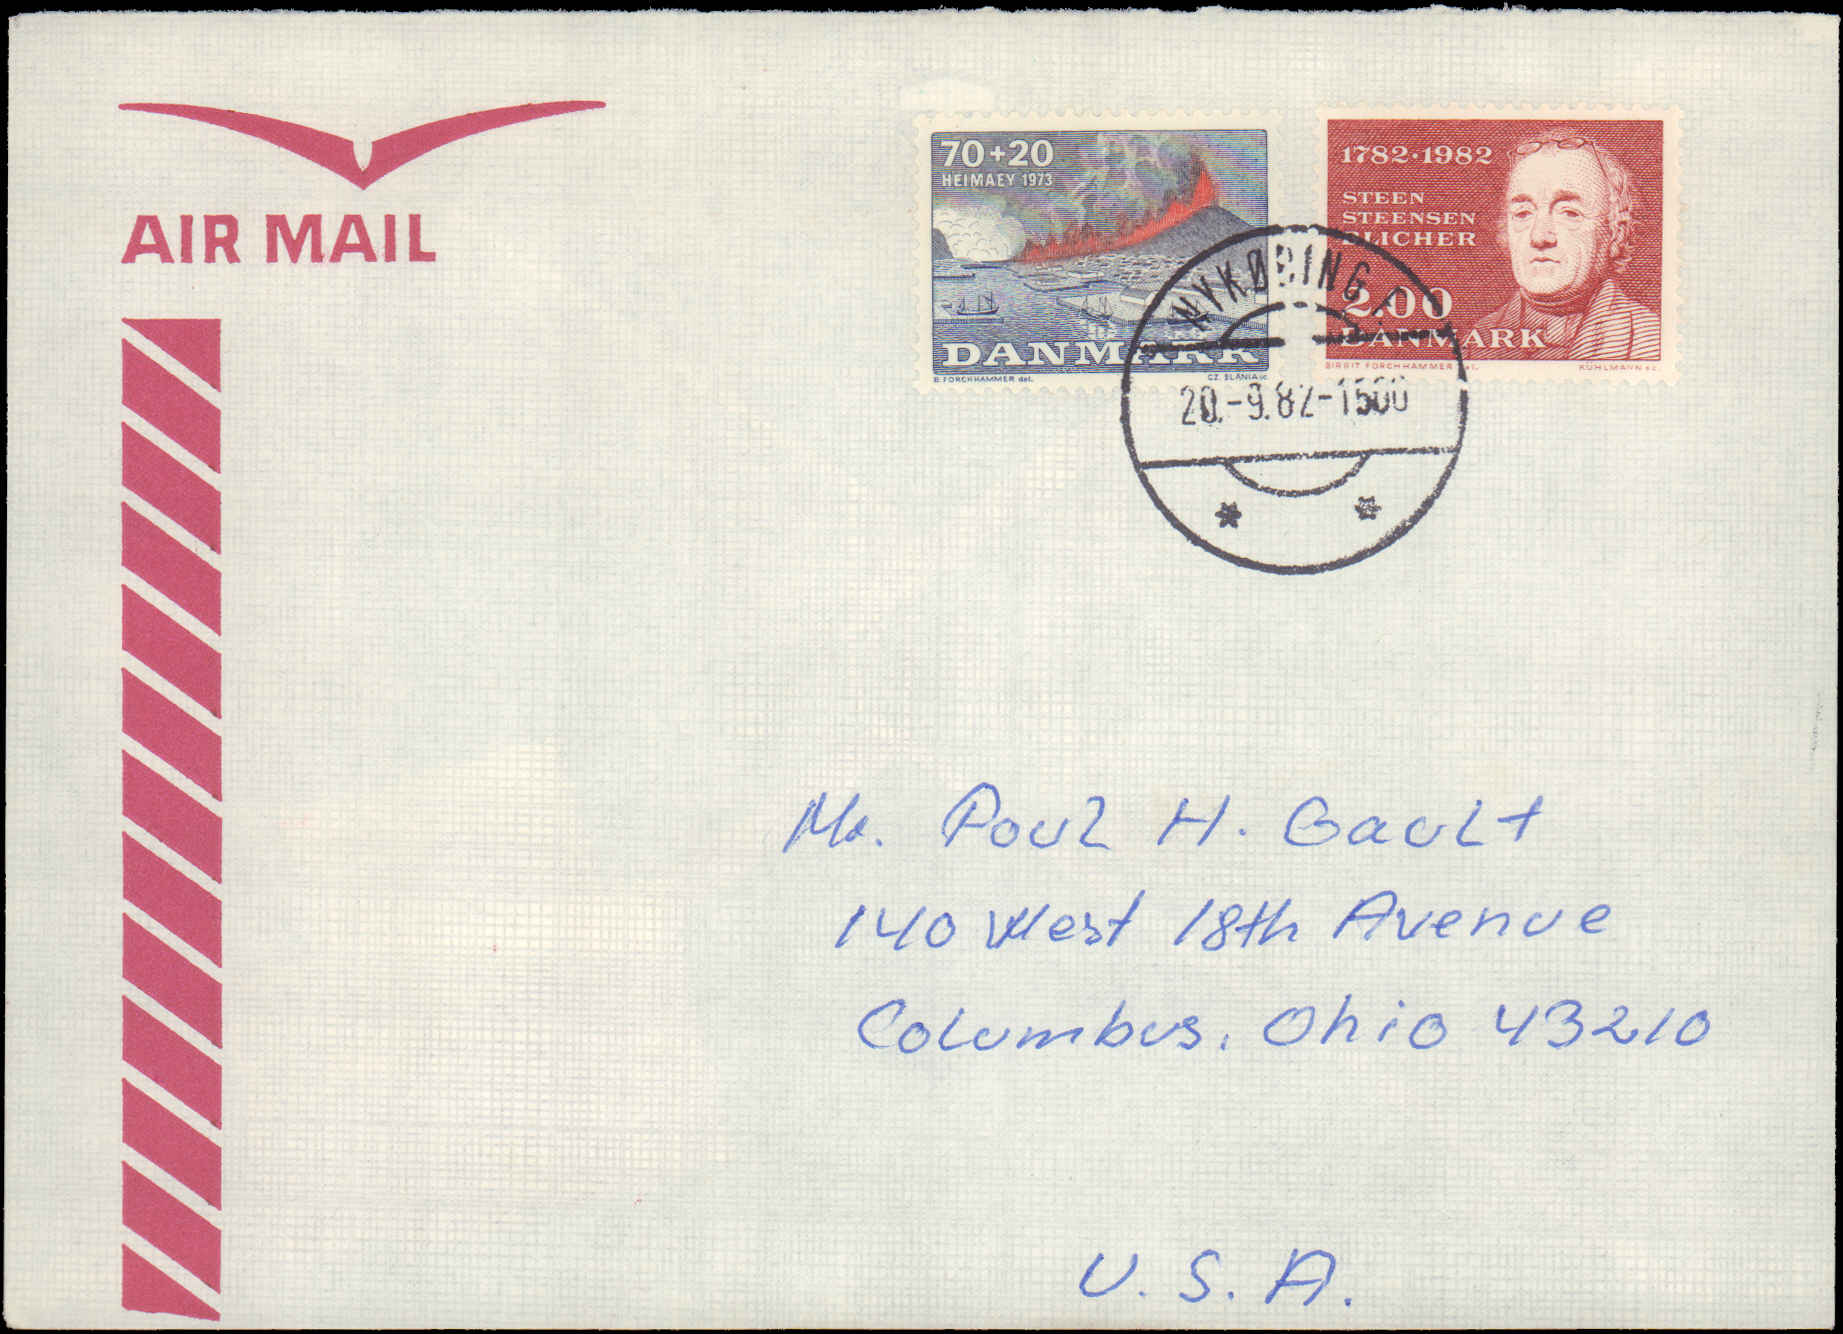 AIR MAIL
70+20
HEIMAEY 1973
DANMARK
B. FORCHHAMMER del.
CZ. SLANIA sc.
1782·1982
STEEN
STEENSEN
BLICHER
2.00
DANMARK
BIRGIT FORCHHAMMER del.
KUHLMANN sc.
NYKØBING F.
20.-9.82-1500
Mr. Poul H. Gault
140 West 18th Avenue
Columbus, Ohio 43210
U.S.A.